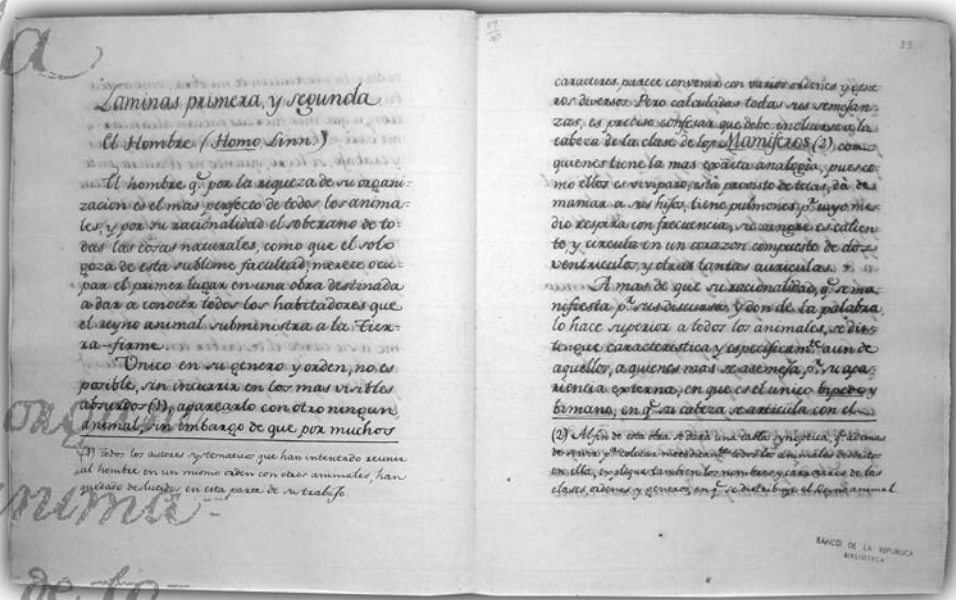 Laminas primera, y segunda
El Hombre (Homo Linn.)
El hombre q.e por la riqueza de su organi-
zacion es el mas perfecto de todos los anima-
les, y por su racionalidad el soberano de to-
das las cosas naturales, como que el solo
goza de esta sublime facultad, merece ocu-
par el primer lugar en una obra destinada
a dar a conocer todos los habitadores que
el reyno animal subministra a la Tier-
ra-firme.
Unico en su genero y orden, no es
posible, sin incurrir en los mas visibles
absurdos (1), aparearlo con otro ningun
animal, sin embargo de que por muchos
(1) todos los autores systematicos que han intentado reunir
al hombre en un mismo orden con otros animales, han
quedado deslucidos en esta parte de su trabajo.
57
33
caracteres parece convenir con varios ordenes y gene-
ros diversos. Pero calculadas todas sus semejan-
zas, es preciso confesar que debe incluirse a la
cabeza de la clase de los Mamiferos (2), con
quienes tiene la mas exacta analogia, pues co-
mo ellos es viviparo, está provisto de tetas, dá de
mamar a sus hijos, tiene pulmones p.r cuyo me-
dio respira con frecuencia, su sangre es calien-
te, y circula en un corazon compuesto de dos
ventriculos, y otras tantas auriculas.
A mas de que su racionalidad, q.e se ma-
nifiesta p.r sus discursos y don de la palabra,
lo hace superior a todos los animales, se dis-
tingue caracteristica y especificam.te aun de
aquellos, a quienes mas se asemeja p.r su apa-
riencia externa, en que es el unico bipedo y
bimano, en q.e su cabeza se articula con el
(2) Al fin de esta obra se dará una tabla synoptica, q.e ademas
de servir p.a colocar metodicam.te todos los animales descritos
en ella, explique tambien los nombres y caracteres de las
clases, ordenes y generos, en q.e se distribuye el Reyno animal
BANCO DE LA REPUBLICA
BIBLIOTECA